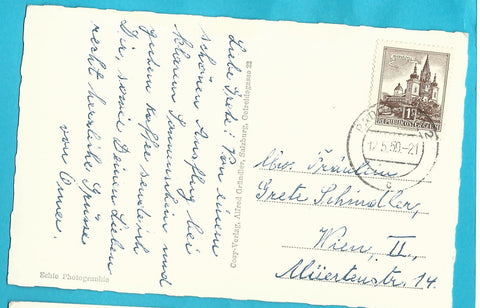 Liebe Grete! Von einem
schönen Ausflug bei
klarem Sonnenschein und
gutem Kaffee sende ich
Dir, sowie Deinen Lieben
recht herzliche Grüsse
von Anna.
Cosy-Verlag, Alfred Gründler, Salzburg, Getreidegasse 22
Echte Photographie
REPUBLIK ÖSTERREICH
12.5.60-21
c
Fräulein
Grete Schindler,
Wien, II.,
14.